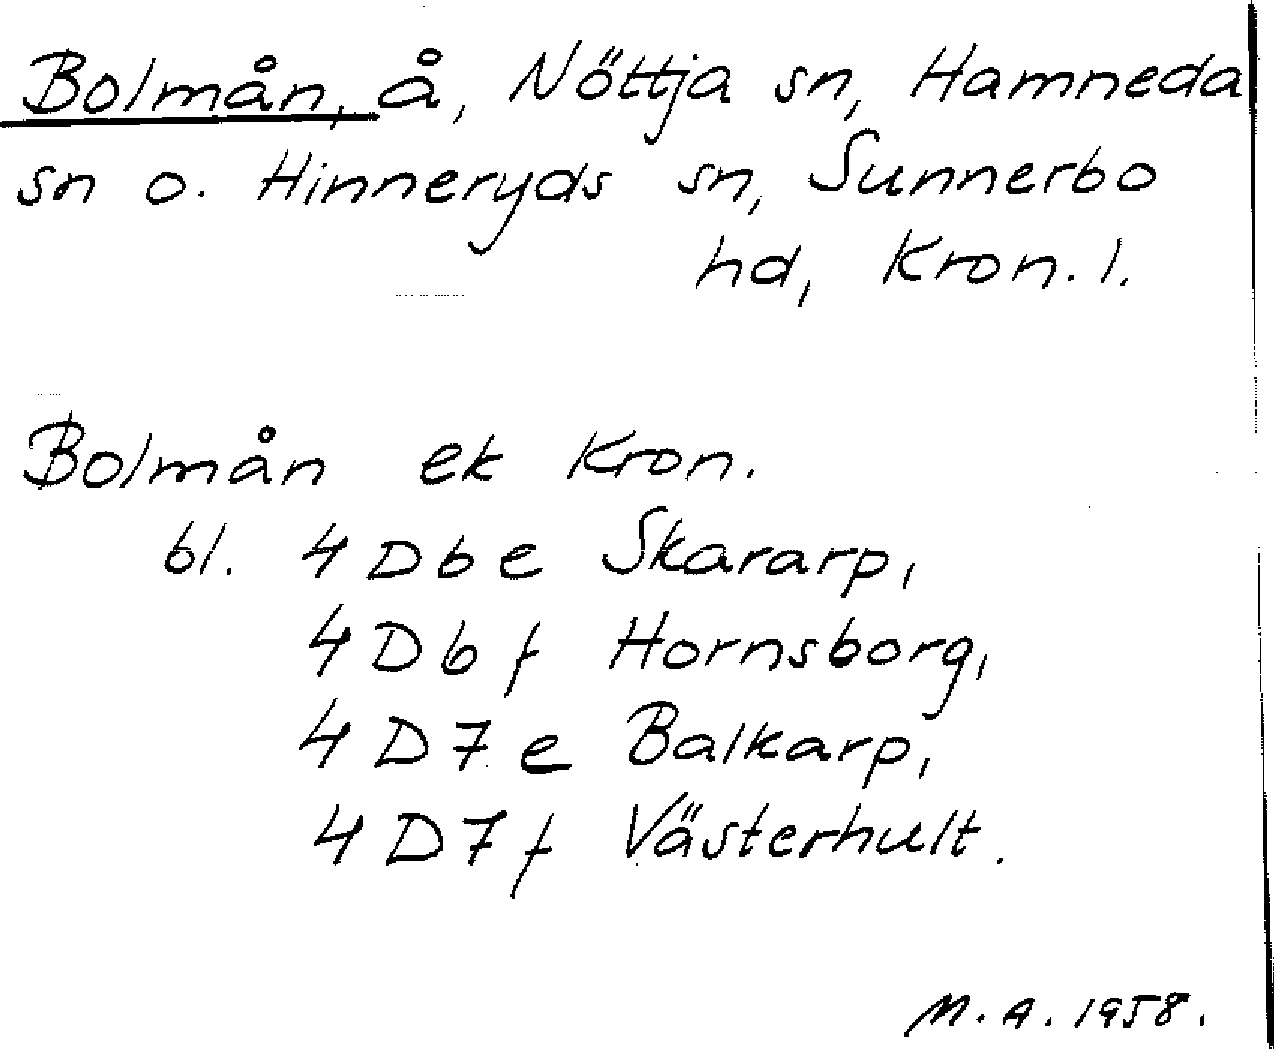 Bolmån, å, Nöttja sn, Hamneda
sn o. Hinneryds sn, Sunnerbo
hd, Kron. l.
Bolmån ek Kron.
bl. 4 D 6 e Skararp,
4 D 6 f Hornsborg,
4 D 7 e Balkarp,
4 D 7 f Västerhult.
M. A. 1958.